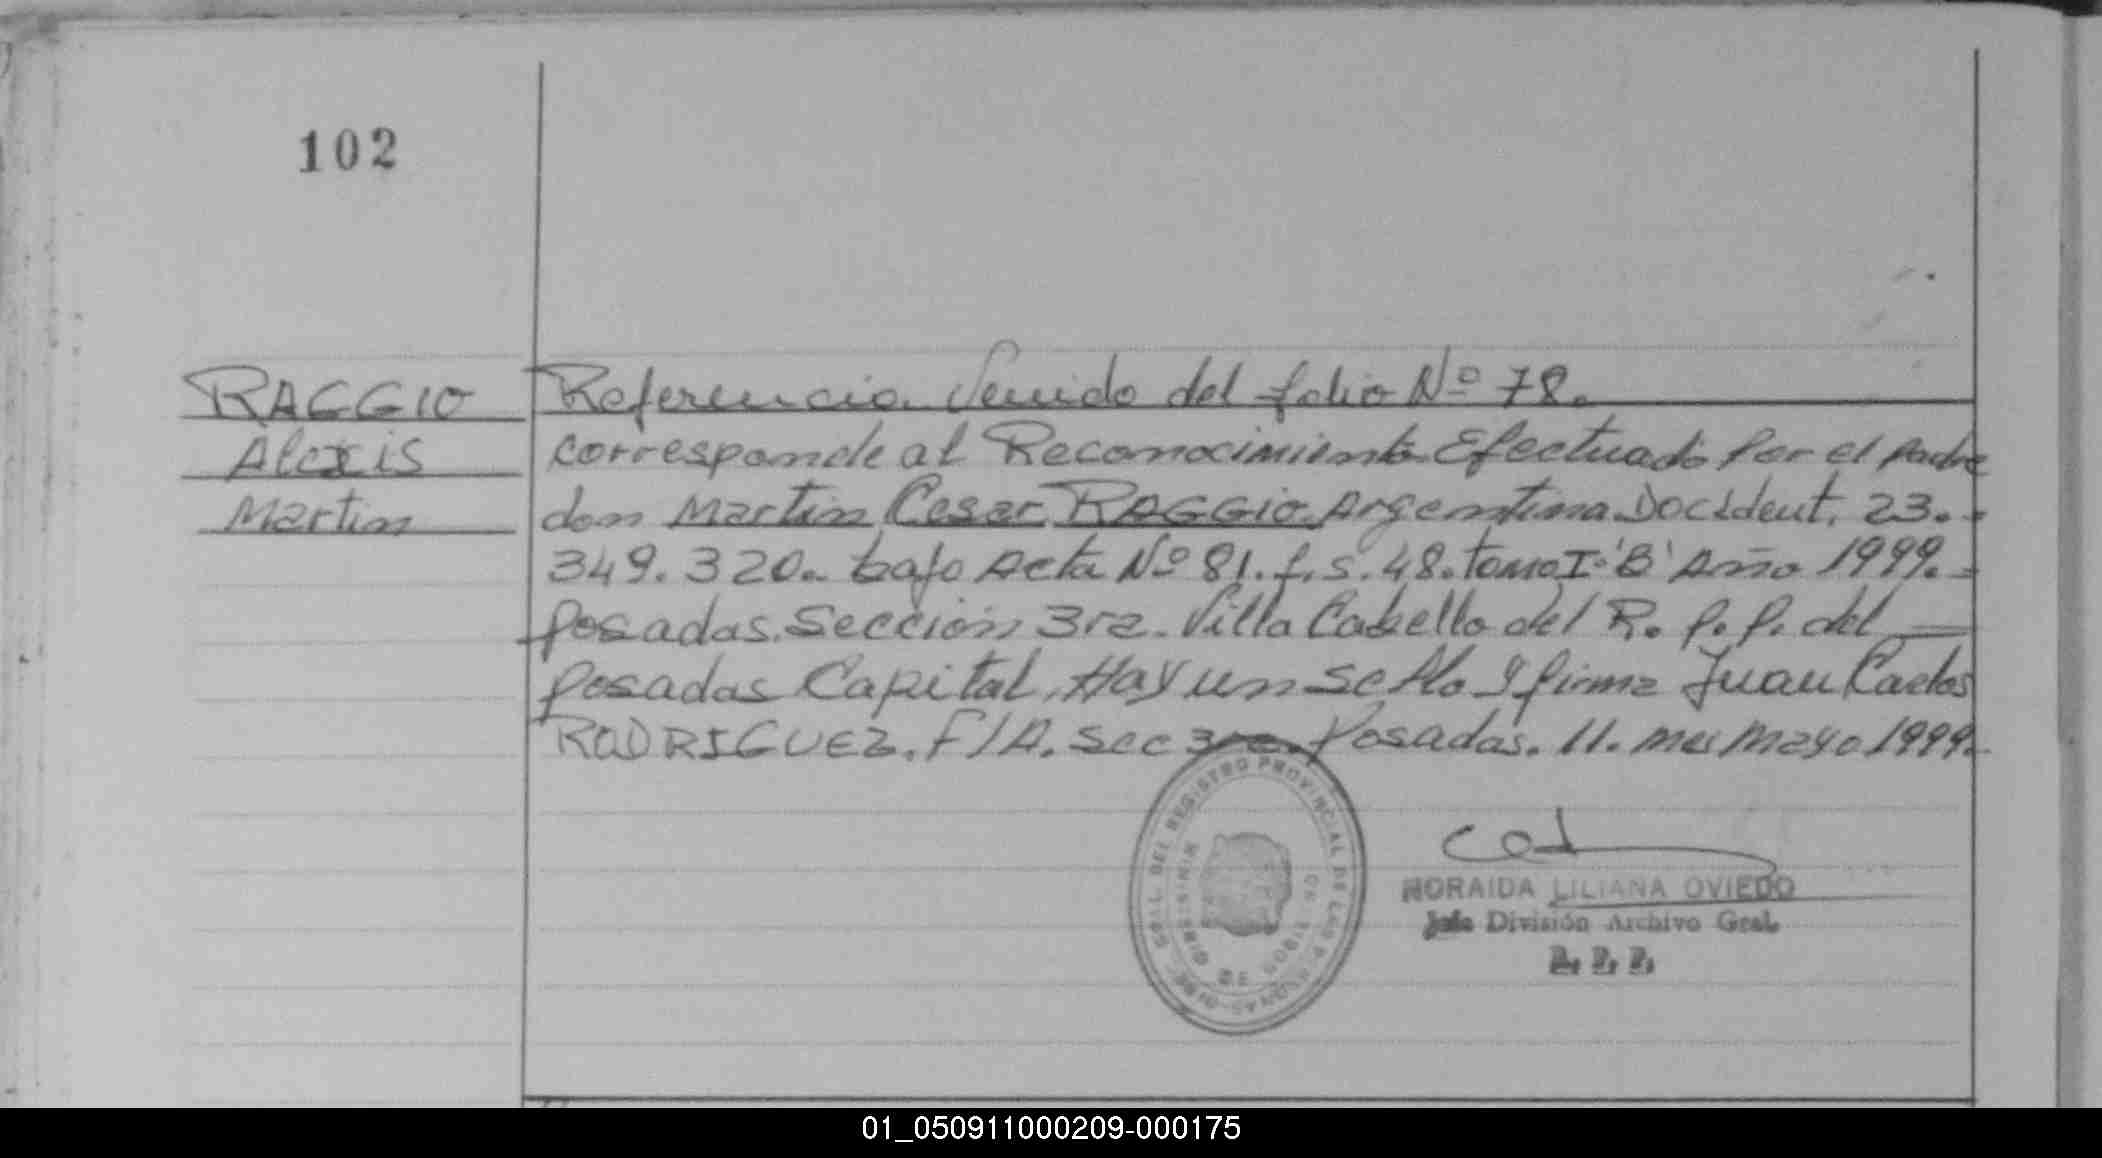 102
RAGGIO
Alexis
Martin
Referencia Venido del folio Nº 78.
corresponde al Reconocimiento Efectuado Por el padre
don Martin Cesar RAGGIO Argentina Doc Ident. 23.-
349.320.- bajo Acta Nº 81. f.s. 48. tomo I-'B' Año 1999.-
Posadas. Sección 3ra. Villa Cabello del R. P. P. del —
Posadas Capital, Hay un Sello y firma Juan Carlos
RODRIGUEZ. F/A. Sec 3ra. Posadas. 11. mes Mayo 1999.
DEL REGISTRO PROVINCIAL DE LAS P
MINISTERIO DE GOBIERNO
NORAIDA LILIANA OVIEDO
Jefe División Archivo Gral.
R. P. P.
01_050911000209-000175